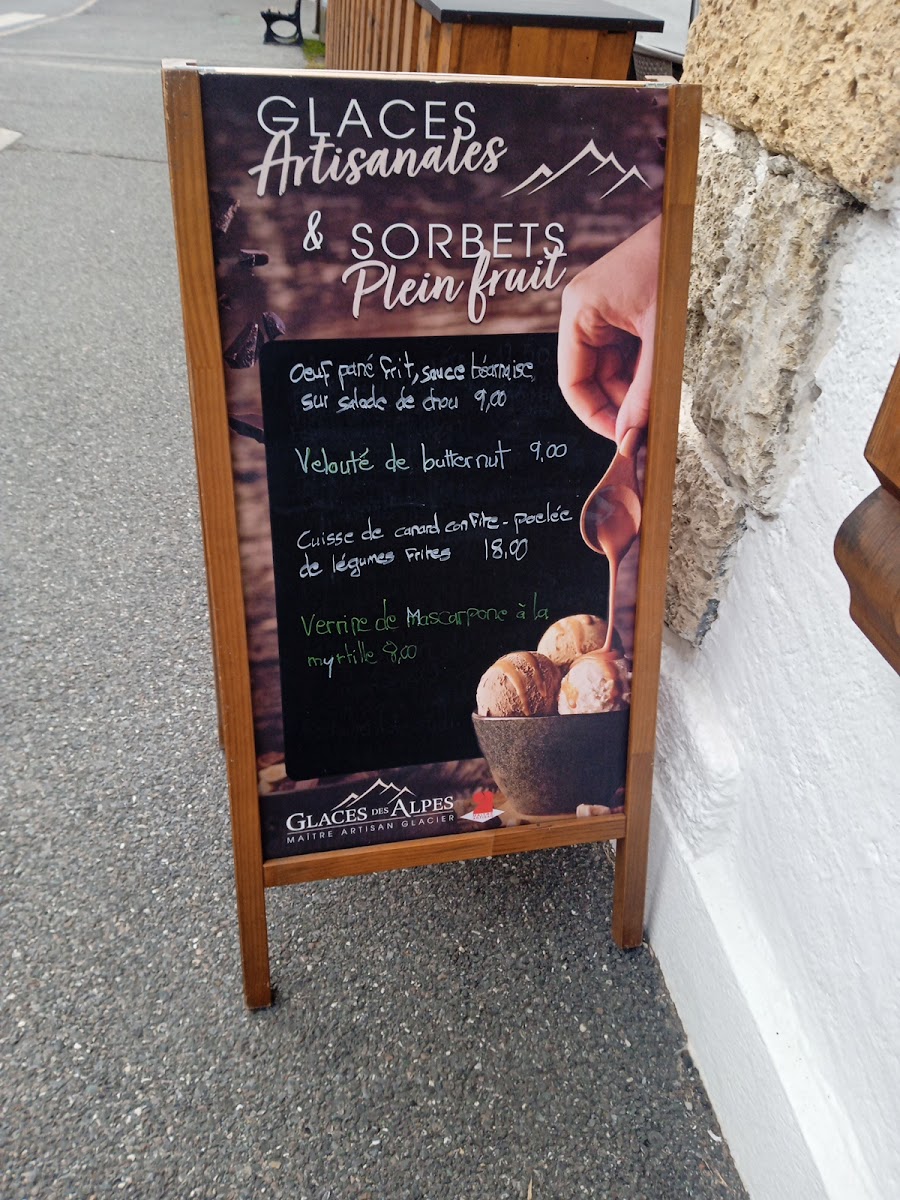 GLACES
Artisanales
& SORBETS
Plein fruit
Oeuf pané frit, sauce béarnaise
sur salade de chou 9,00
Velouté de butternut 9,00
Cuisse de canard confite - poelée
de légumes Frites 18,00
Verrine de Mascarpone à la
myrtille 8,00
GLACES DES ALPES
MAÎTRE ARTISAN GLACIER